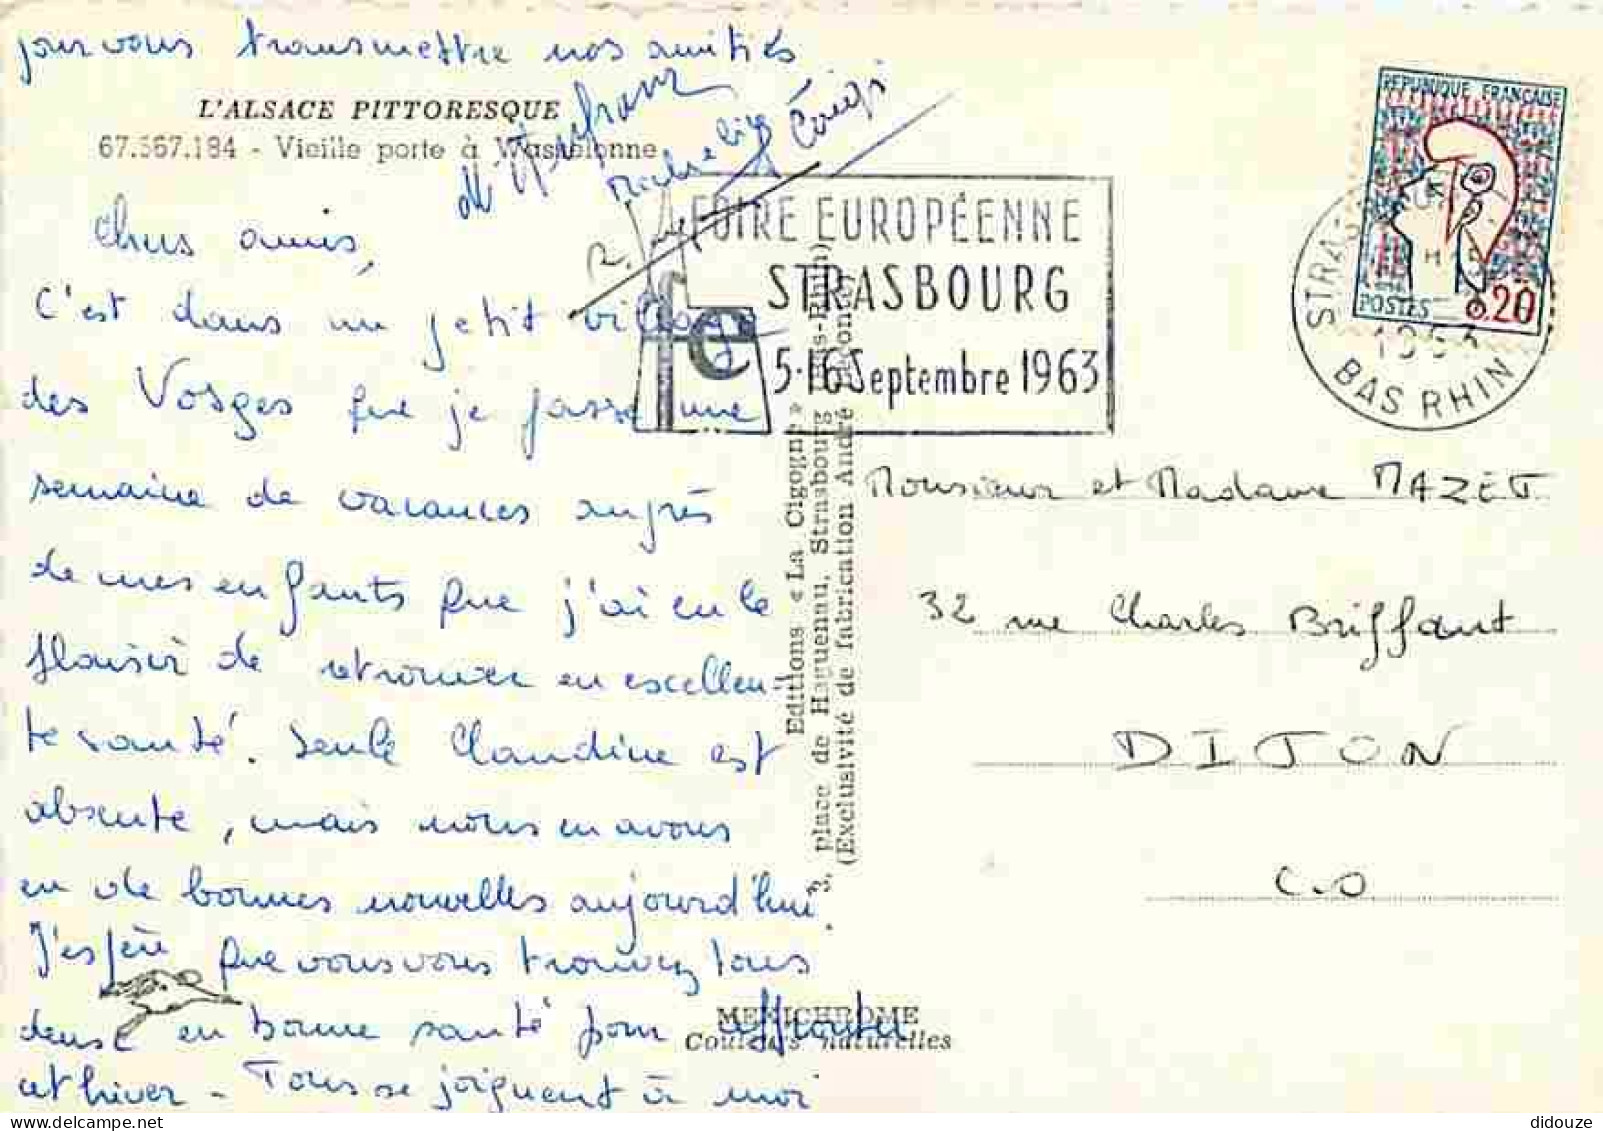 pour vous transmettre nos amitiés
L'ALSACE PITTORESQUE
67.567.184 - Vieille porte à Wasselonne
Chers amis,
C'est dans un petit village
des Vosges que je passe une
semaine de vacances auprès
de mes enfants que j'ai eu le
plaisir de retrouver en excellen-
te santé. Seule Claudine est
absente, mais nous en avons
eu de bonnes nouvelles aujourd'hui.
J'espère que vous vous trouvez tous
deux en bonne santé pour affronter
cet hiver - Tous se joignent à moi
FOIRE EUROPÉENNE
STRASBOURG
5-16 Septembre 1963
REPUBLIQUE FRANÇAISE
POSTES 0.20
STRAS
1963
BAS RHIN
Editions « La Cigogne »
3, place de Haguenau, Strasbourg (Bas-Rhin)
(Exclusivité de fabrication André
Monsieur et Madame MAZET
32 rue Charles Briffaut
DIJON
C.O
MEXICHROME
Couleurs naturelles
didouze